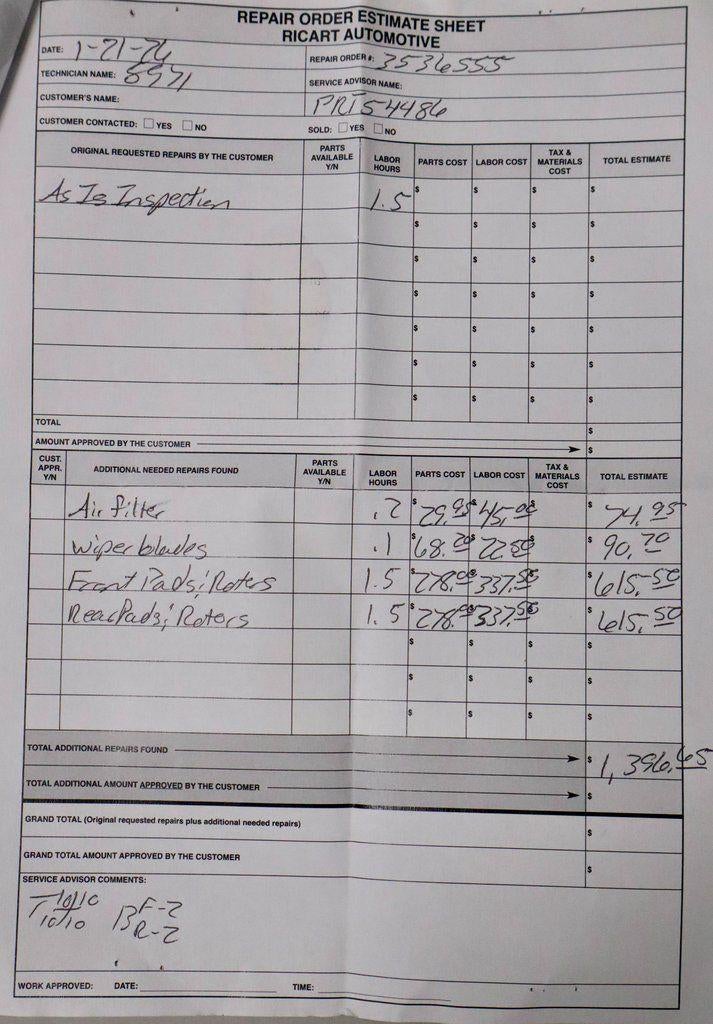 REPAIR ORDER ESTIMATE SHEET
RICART AUTOMOTIVE
DATE: 1-21-26
REPAIR ORDER #: 3536555
TECHNICIAN NAME: 8971
SERVICE ADVISOR NAME:
CUSTOMER'S NAME:
PRT54486
CUSTOMER CONTACTED: YES NO
SOLD: YES NO
ORIGINAL REQUESTED REPAIRS BY THE CUSTOMER PARTS AVAILABLE Y/N LABOR HOURS PARTS COST LABOR COST TAX & MATERIALS COST TOTAL ESTIMATE
As Is Inspection 1.5 $ $ $ $
$ $ $ $
$ $ $ $
$ $ $ $
$ $ $ $
$ $ $ $
$ $ $ $
TOTAL $
AMOUNT APPROVED BY THE CUSTOMER $
CUST. APPR. Y/N ADDITIONAL NEEDED REPAIRS FOUND PARTS AVAILABLE Y/N LABOR HOURS PARTS COST LABOR COST TAX & MATERIALS COST TOTAL ESTIMATE
Air filter .2 $29.95 $45.00 $ $74.95
Wiper blades .1 $68.20 $22.50 $ $90.70
Front Pads; Rotors 1.5 $278.00 $337.50 $ $615.50
Rear Pads; Rotors 1.5 $278.00 $337.50 $ $615.50
$ $ $ $
$ $ $ $
$ $ $ $
TOTAL ADDITIONAL REPAIRS FOUND $1,396.65
TOTAL ADDITIONAL AMOUNT APPROVED BY THE CUSTOMER $
GRAND TOTAL (Original requested repairs plus additional needed repairs) $
GRAND TOTAL AMOUNT APPROVED BY THE CUSTOMER $
SERVICE ADVISOR COMMENTS:
T 10/10 B F-2
10/10 R-2
WORK APPROVED: DATE: TIME: